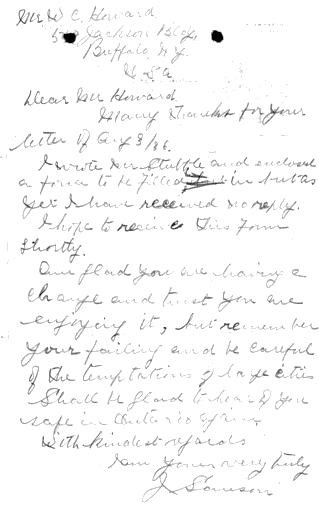 Mr W C. Howard
Jackson Bldg,
Buffalo N.Y.
U.S.A.
Dear Mr Howard
Many thanks for your
letter of Aug 3/36.
I wrote Mr and enclosed
a form to be filled in but as
yet I have received no reply.
I hope to receive this form
shortly.
Am glad you are having a
change and trust you are
enjoying it, but remember
your failing and be careful
of the temptations of large cities
Shall be glad to hear of you
safe in Ontario again
With kindest regards
I am yours very truly
J